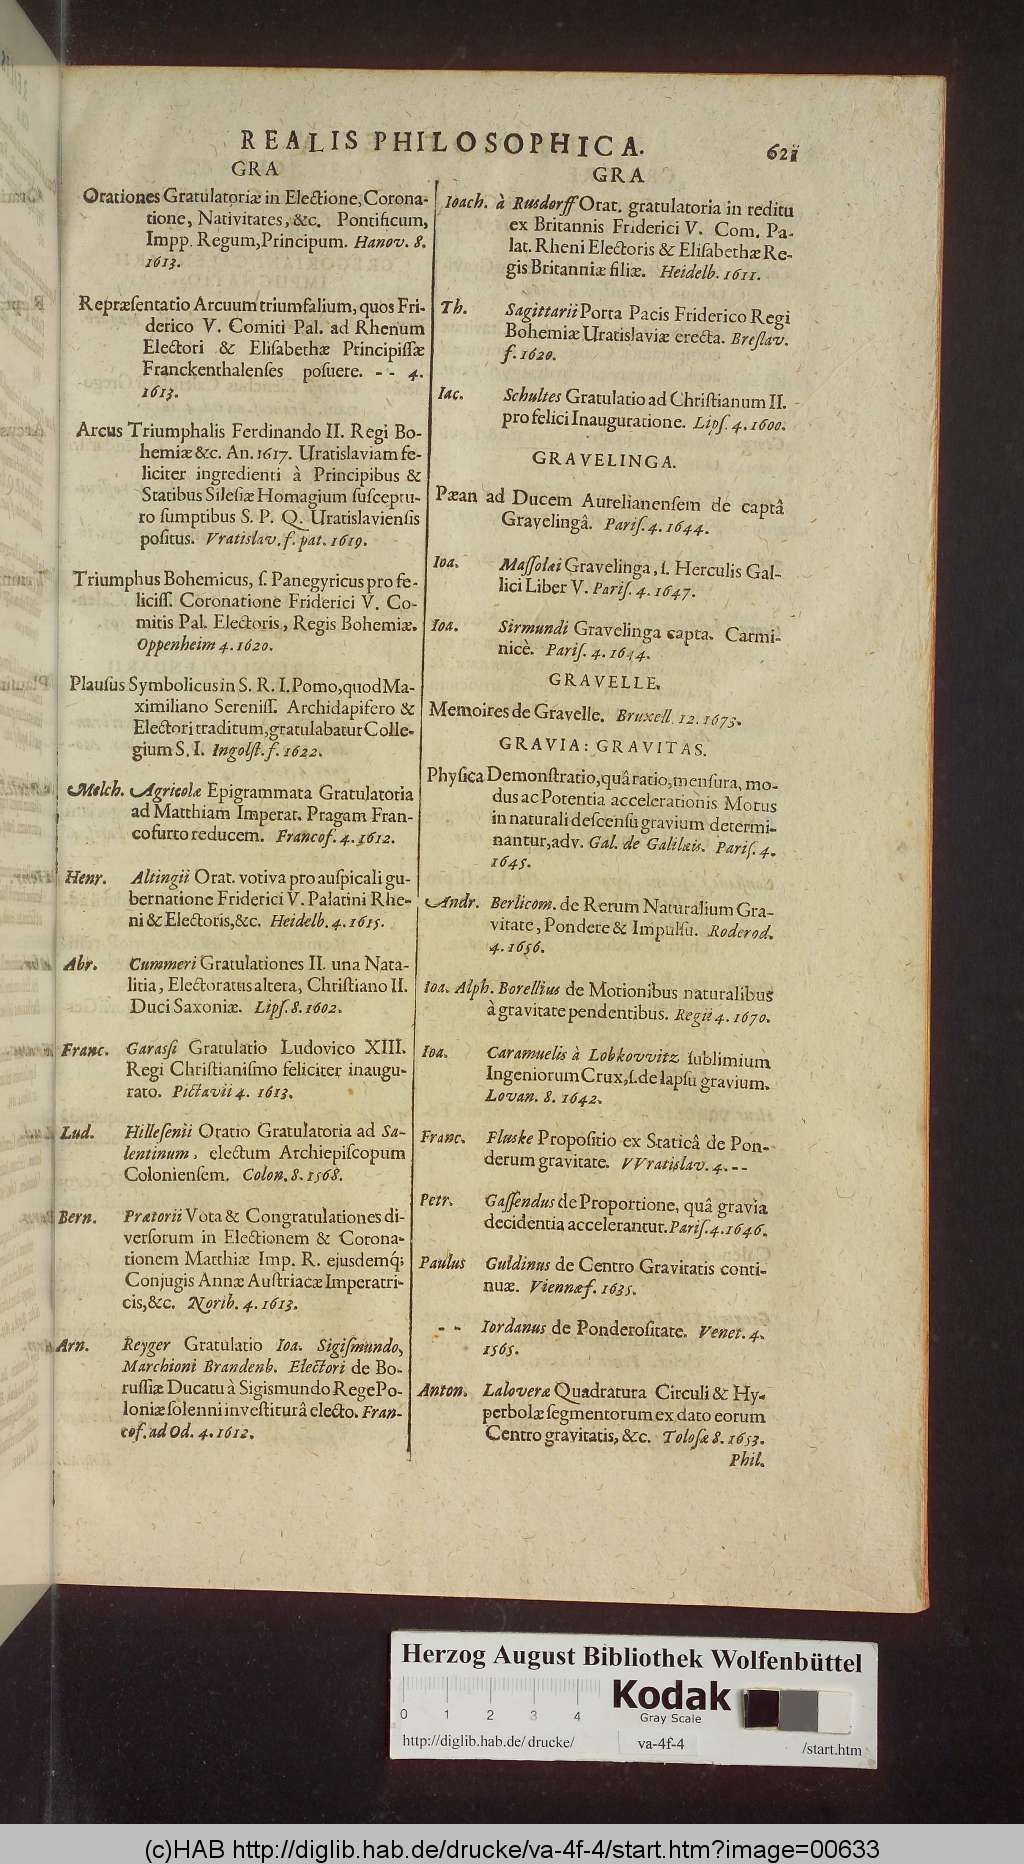 REALIS PHILOSOPHICA.
621
GRA
Orationes Gratulatoriæ in Electione, Corona-
tione, Nativitates, &c. Pontificum,
Impp. Regum, Principum. Hanov. 8.
1613.
Repræſentatio Arcuum triumfalium, quos Fri-
derico V. Comiti Pal. ad Rhenum
Electori & Eliſabethæ Principiſſæ
Franckenthalenſes poſuere. - - 4.
1613.
Arcus Triumphalis Ferdinando II. Regi Bo-
hemiæ &c. An. 1617. Uratislaviam fe-
liciter ingredienti à Principibus &
Statibus Sileſiæ Homagium ſuſceptu-
ro ſumptibus S. P. Q. Uratislavienſis
poſitus. Vratislav. f. pat. 1619.
Triumphus Bohemicus, ſ. Panegyricus pro fe-
liciſſ. Coronatione Friderici V. Co-
mitis Pal. Electoris, Regis Bohemiæ.
Oppenheim 4. 1620.
Plauſus Symbolicus in S. R. I. Pomo, quod Ma-
ximiliano Sereniſſ. Archidapifero &
Electori traditum, gratulabatur Colle-
gium S. I. Ingolſt. f. 1622.
Melch. Agricolæ Epigrammata Gratulatoria
ad Matthiam Imperat. Pragam Fran-
cofurto reducem. Francof. 4. 1612.
Henr. Altingii Orat. votiva pro auſpicali gu-
bernatione Friderici V. Palatini Rhe-
ni & Electoris, &c. Heidelb. 4. 1615.
Abr. Cummeri Gratulationes II. una Nata-
litia, Electoratus altera, Chriſtiano II.
Duci Saxoniæ. Lipſ. 8. 1602.
Franc. Garaſſi Gratulatio Ludovico XIII.
Regi Chriſtianiſmo feliciter inaugu-
rato. Pictavii 4. 1613.
Lud. Hilleſenii Oratio Gratulatoria ad Sa-
lentinum, electum Archiepiſcopum
Colonienſem. Colon. 8. 1568.
Bern. Prætorii Vota & Congratulationes di-
verſorum in Electionem & Corona-
tionem Matthiæ Imp. R. ejusdemq́;
Conjugis Annæ Auſtriacæ Imperatri-
cis, &c. Norib. 4. 1613.
Arn. Reyger Gratulatio Ioa. Sigiſmundo,
Marchioni Brandenb. Electori de Bo-
ruſſiæ Ducatu à Sigismundo Rege Po-
loniæ ſolenni inveſtiturâ electo. Fran-
cof. ad Od. 4. 1612.
GRA
Ioach. à Rusdorff Orat. gratulatoria in reditu
ex Britannis Friderici V. Com. Pa-
lat. Rheni Electoris & Eliſabethæ Re-
gis Britanniæ filiæ. Heidelb. 1611.
Th. Sagittarii Porta Pacis Friderico Regi
Bohemiæ Uratislaviæ erecta. Breſlav.
f. 1620.
Iac. Schultes Gratulatio ad Chriſtianum II.
pro felici Inauguratione. Lipſ. 4. 1600.
GRAVELINGA.
Pæan ad Ducem Aurelianenſem de captâ
Gravelingâ. Pariſ. 4. 1644.
Ioa. Maſſolai Gravelinga, ſ. Herculis Gal-
lici Liber V. Pariſ. 4. 1647.
Ioa. Sirmundi Gravelinga capta. Carmi-
nicè. Pariſ. 4. 1644.
GRAVELLE.
Memoires de Gravelle. Bruxell. 12. 1673.
GRAVIA: GRAVITAS.
Phyſica Demonſtratio, quâ ratio, menſura, mo-
dus ac Potentia accelerationis Motus
in naturali deſcenſu gravium determi-
nantur, adv. Gal. de Galilæis. Pariſ. 4.
1645.
Andr. Berlicom. de Rerum Naturalium Gra-
vitate, Pondere & Impulſu. Roderod.
4. 1656.
Ioa. Alph. Borellius de Motionibus naturalibus
à gravitate pendentibus. Regii 4. 1670.
Ioa. Caramuelis à Lobkovvitz ſublimium
Ingeniorum Crux, ſ. de lapſu gravium.
Lovan. 8. 1642.
Franc. Fluske Propoſitio ex Staticâ de Pon-
derum gravitate. VVratislav. 4. - -
Petr. Gaſſendus de Proportione, quâ gravia
decidentia accelerantur. Pariſ. 4. 1646.
Paulus Guldinus de Centro Gravitatis conti-
nuæ. Viennæ f. 1635.
- - Iordanus de Ponderoſitate. Venet. 4.
1565.
Anton. Laloveræ Quadratura Circuli & Hy-
perbolæ ſegmentorum ex dato eorum
Centro gravitatis, &c. Toloſæ 8. 1653.
Phil.
Herzog August Bibliothek Wolfenbüttel
Kodak
Gray Scale
0 1 2 3 4
http://diglib.hab.de/drucke/ va-4f-4 /start.htm
(c)HAB http://diglib.hab.de/drucke/va-4f-4/start.htm?image=00633